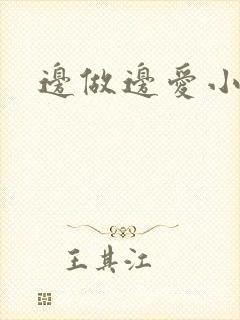 邊做邊愛小
王其江